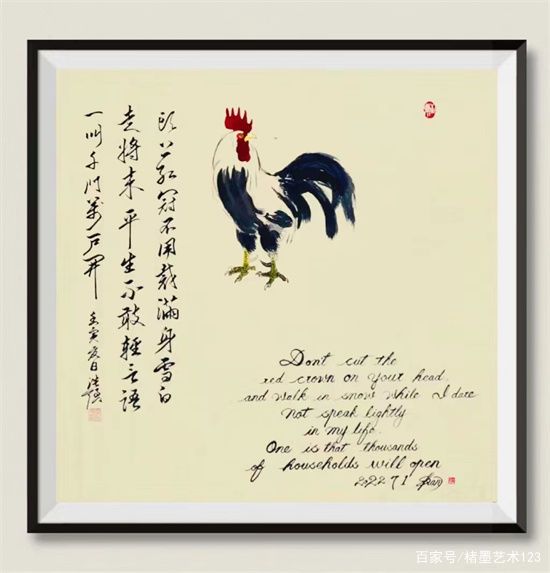 头上红冠不用裁滿身雪白
走将来平生不敢輕言语
一叫千门萬户开
壬寅夏日
Dont cut the
red crown on your head
and walk in snow while I dare
Not speak lightly
in my life.
One is that thousands
of households will open
2022 7 1
百家号/楮墨艺术123